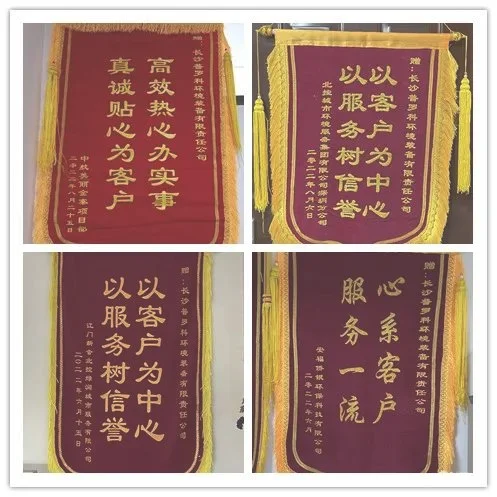 赠:长沙普罗科环境装备有限责任公司
高效热心办实事
真诚贴心为客户
中航美丽金寨项目部
二零二二年八月二十五日
赠:长沙普罗科环境装备有限责任公司
以客户为中心
以服务树信誉
北控城市环境服务集团有限公司深圳分公司
二零二二年八月六日
赠:长沙普罗科环境装备有限责任公司
以客户为中心
以服务树信誉
江门新会北控绿润城市服务有限公司
赠:长沙普罗科环境装备有限责任公司
心系客户
服务一流
安福侨银环保科技有限公司
二零二二年六月